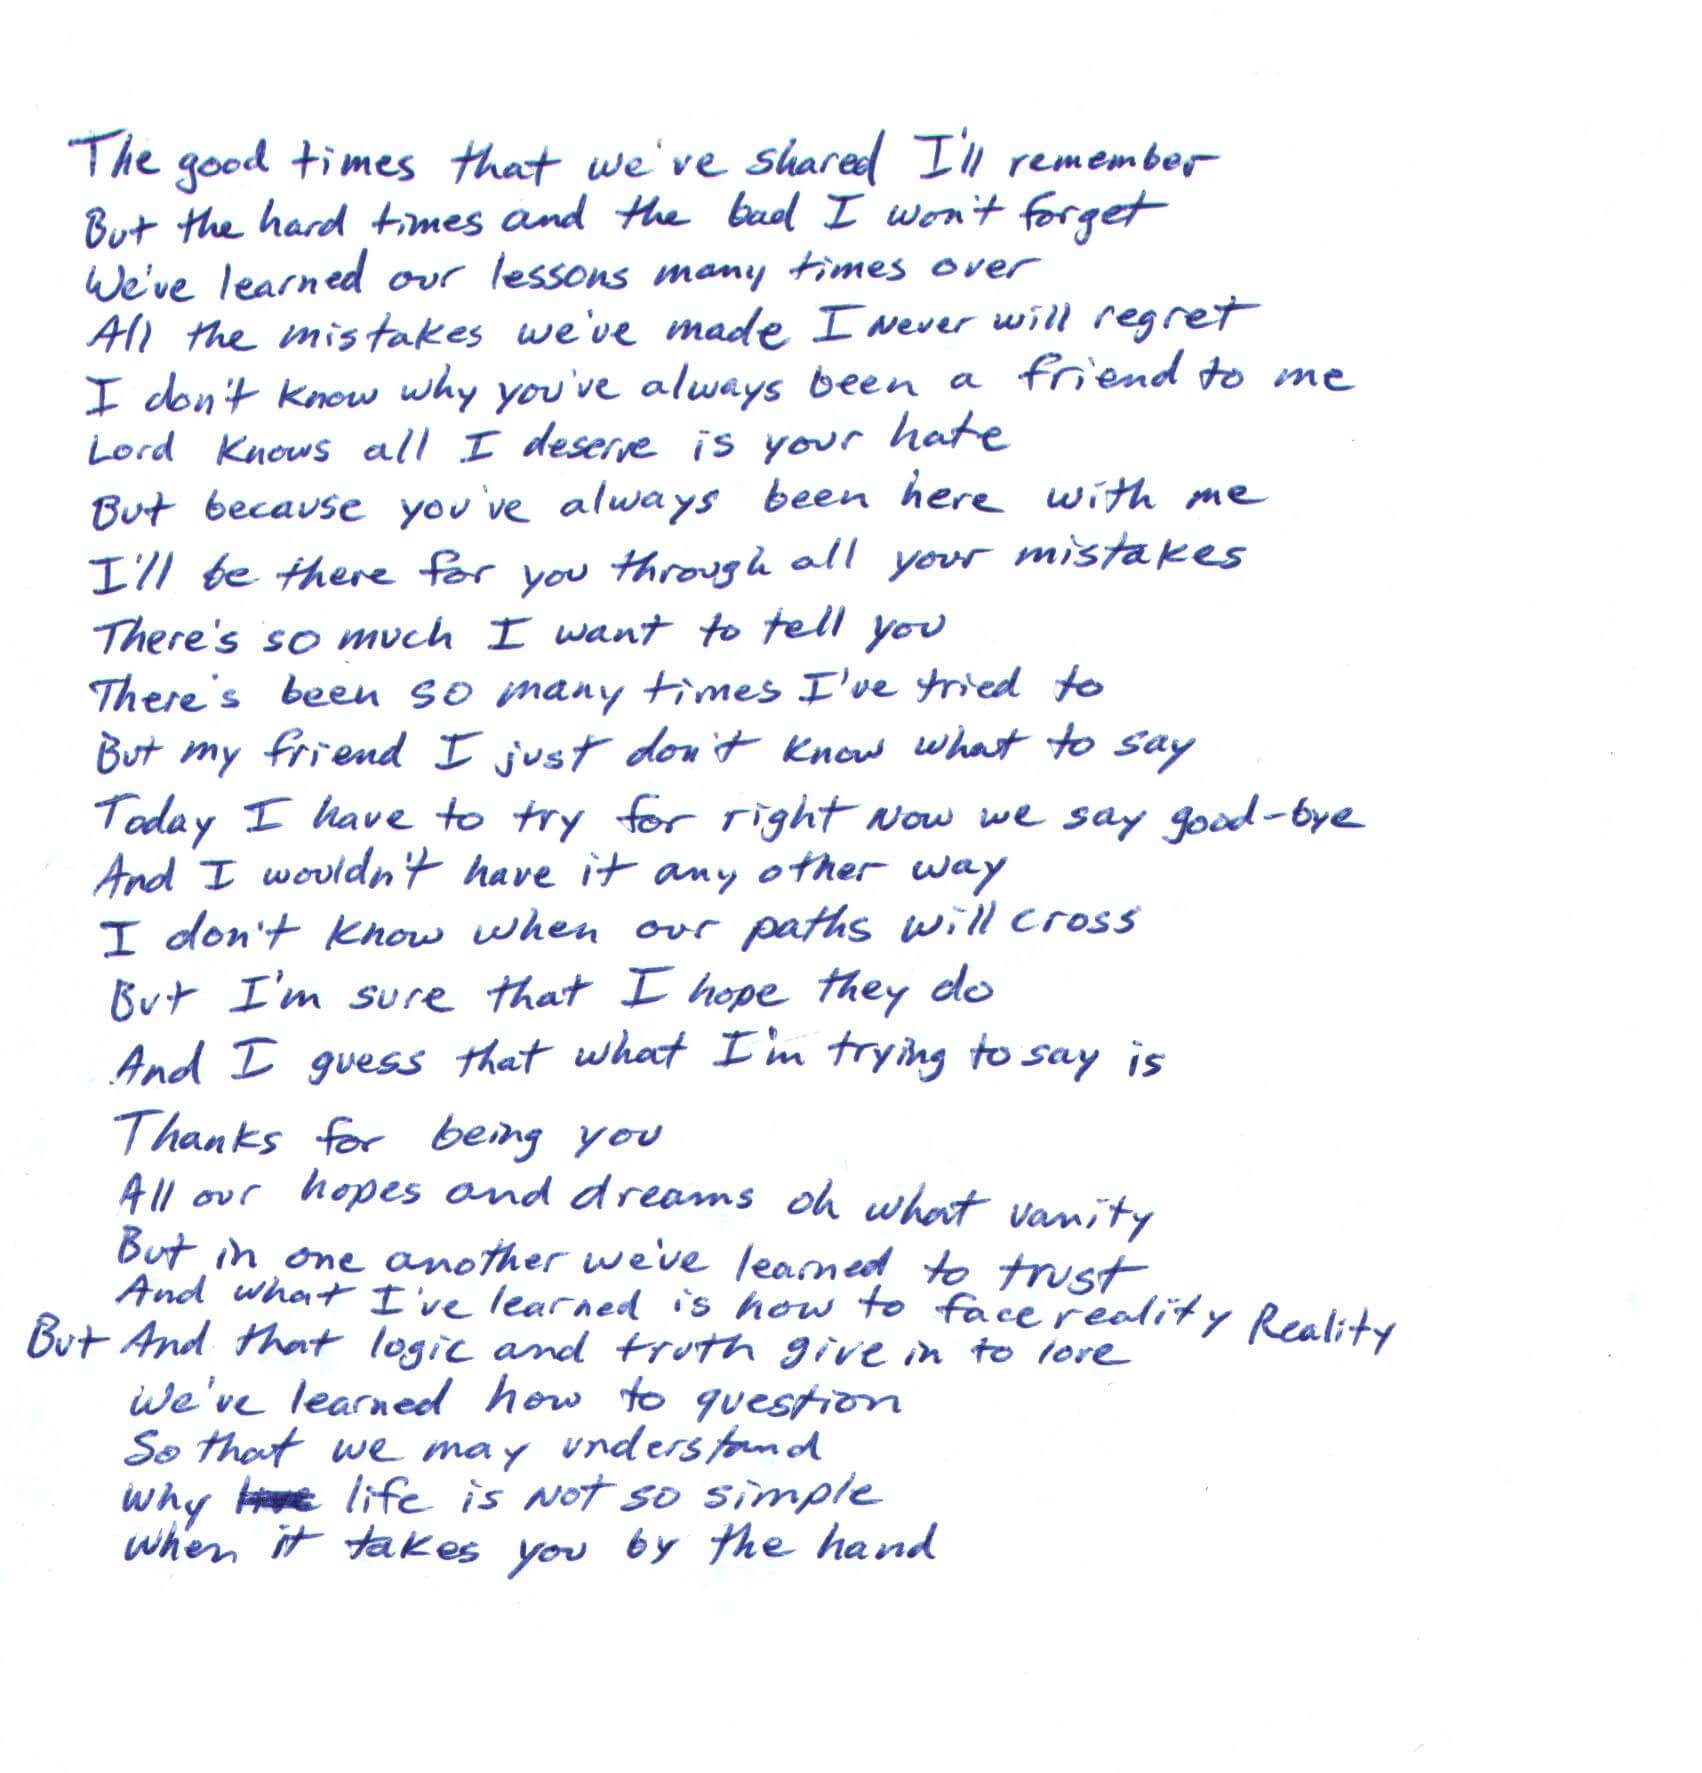 The good times that we've shared I'll remember
But the hard times and the bad I won't forget
We've learned our lessons many times over
All the mistakes we've made I never will regret
I don't know why you've always been a friend to me
Lord knows all I deserve is your hate
But because you've always been here with me
I'll be there for you through all your mistakes
There's so much I want to tell you
There's been so many times I've tried to
But my friend I just don't know what to say
Today I have to try for right now we say good-bye
And I wouldn't have it any other way
I don't know when our paths will cross
But I'm sure that I hope they do
And I guess that what I'm trying to say is
Thanks for being you
All our hopes and dreams oh what vanity
But in one another we've learned to trust
And what I've learned is how to face reality Reality
But And that logic and truth give in to love
We've learned how to question
So that we may understand
Why life is not so simple
When it takes you by the hand